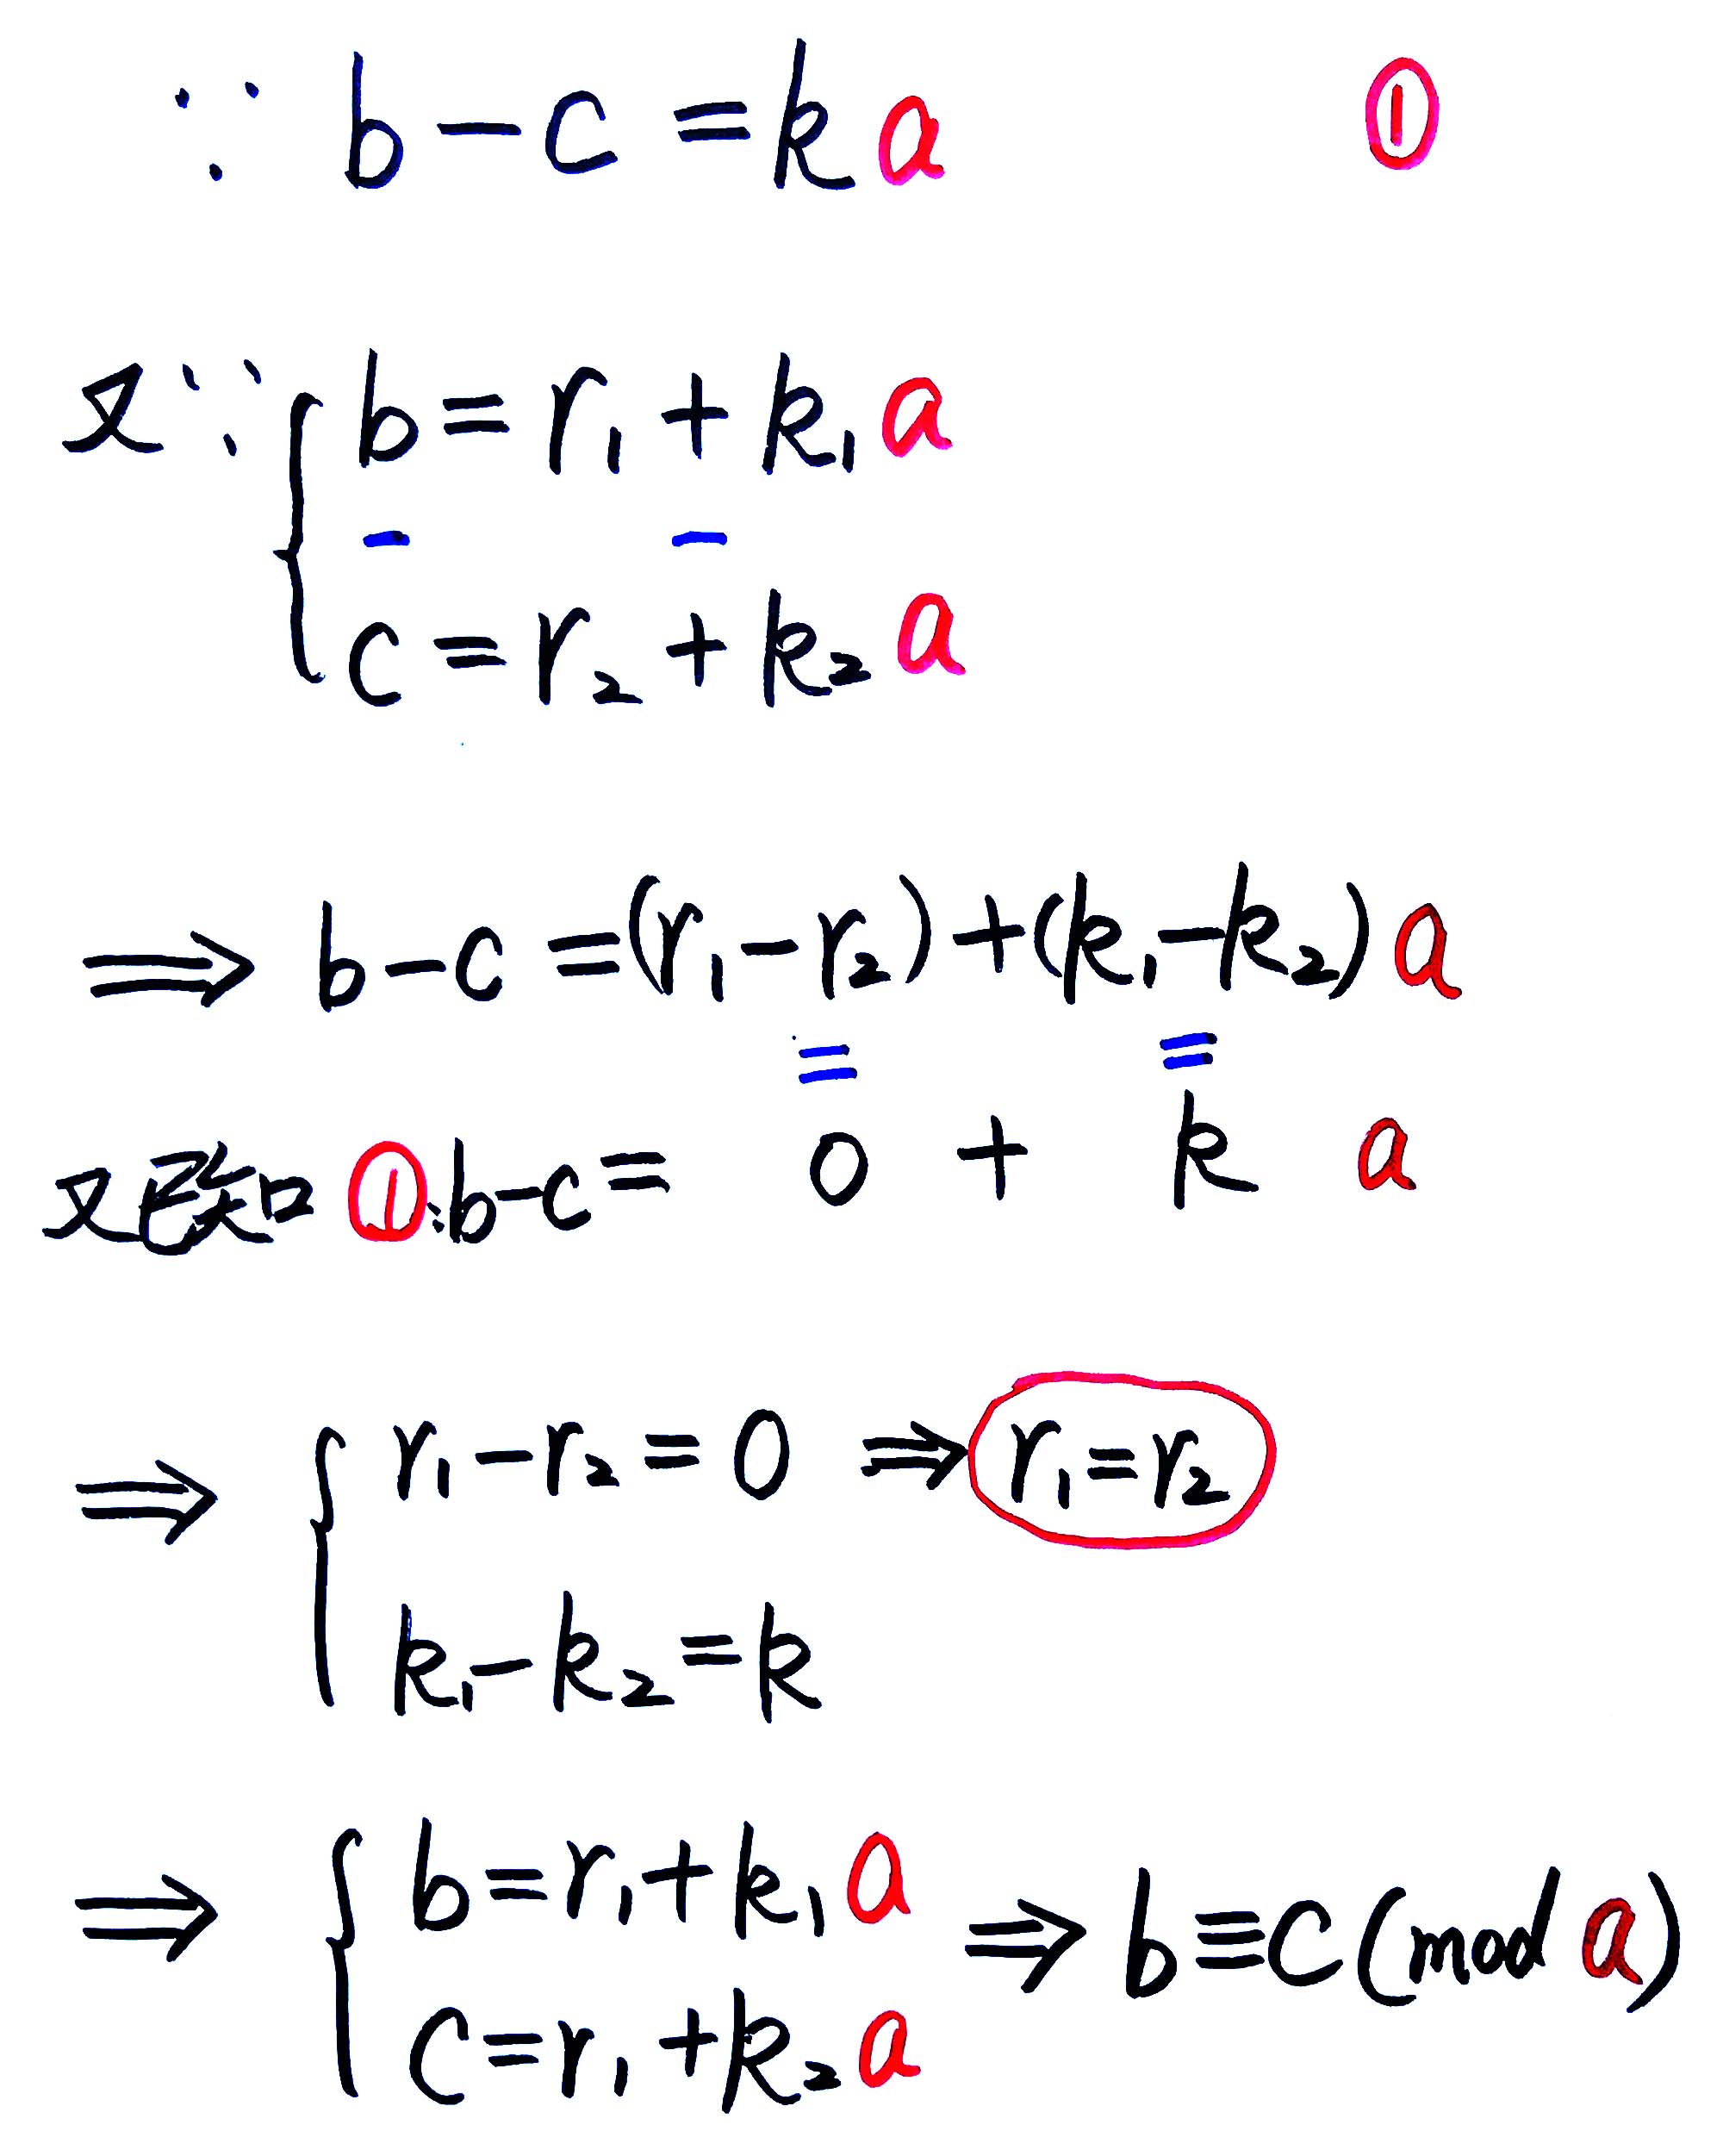 ∵ b-c=ka ①
又∵ b=r₁+k₁a
- -
c=r₂+k₂a
⇒ b-c=(r₁-r₂)+(k₁-k₂)a
= =
又已知①:b-c= 0 + k a
⇒ r₁-r₂=0 ⇒ r₁=r₂
k₁-k₂=k
⇒ b=r₁+k₁a ⇒ b≡c(mod a)
c=r₁+k₂a